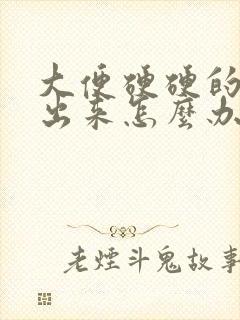 大便硬硬的
出来怎麼办
老煙斗鬼故事